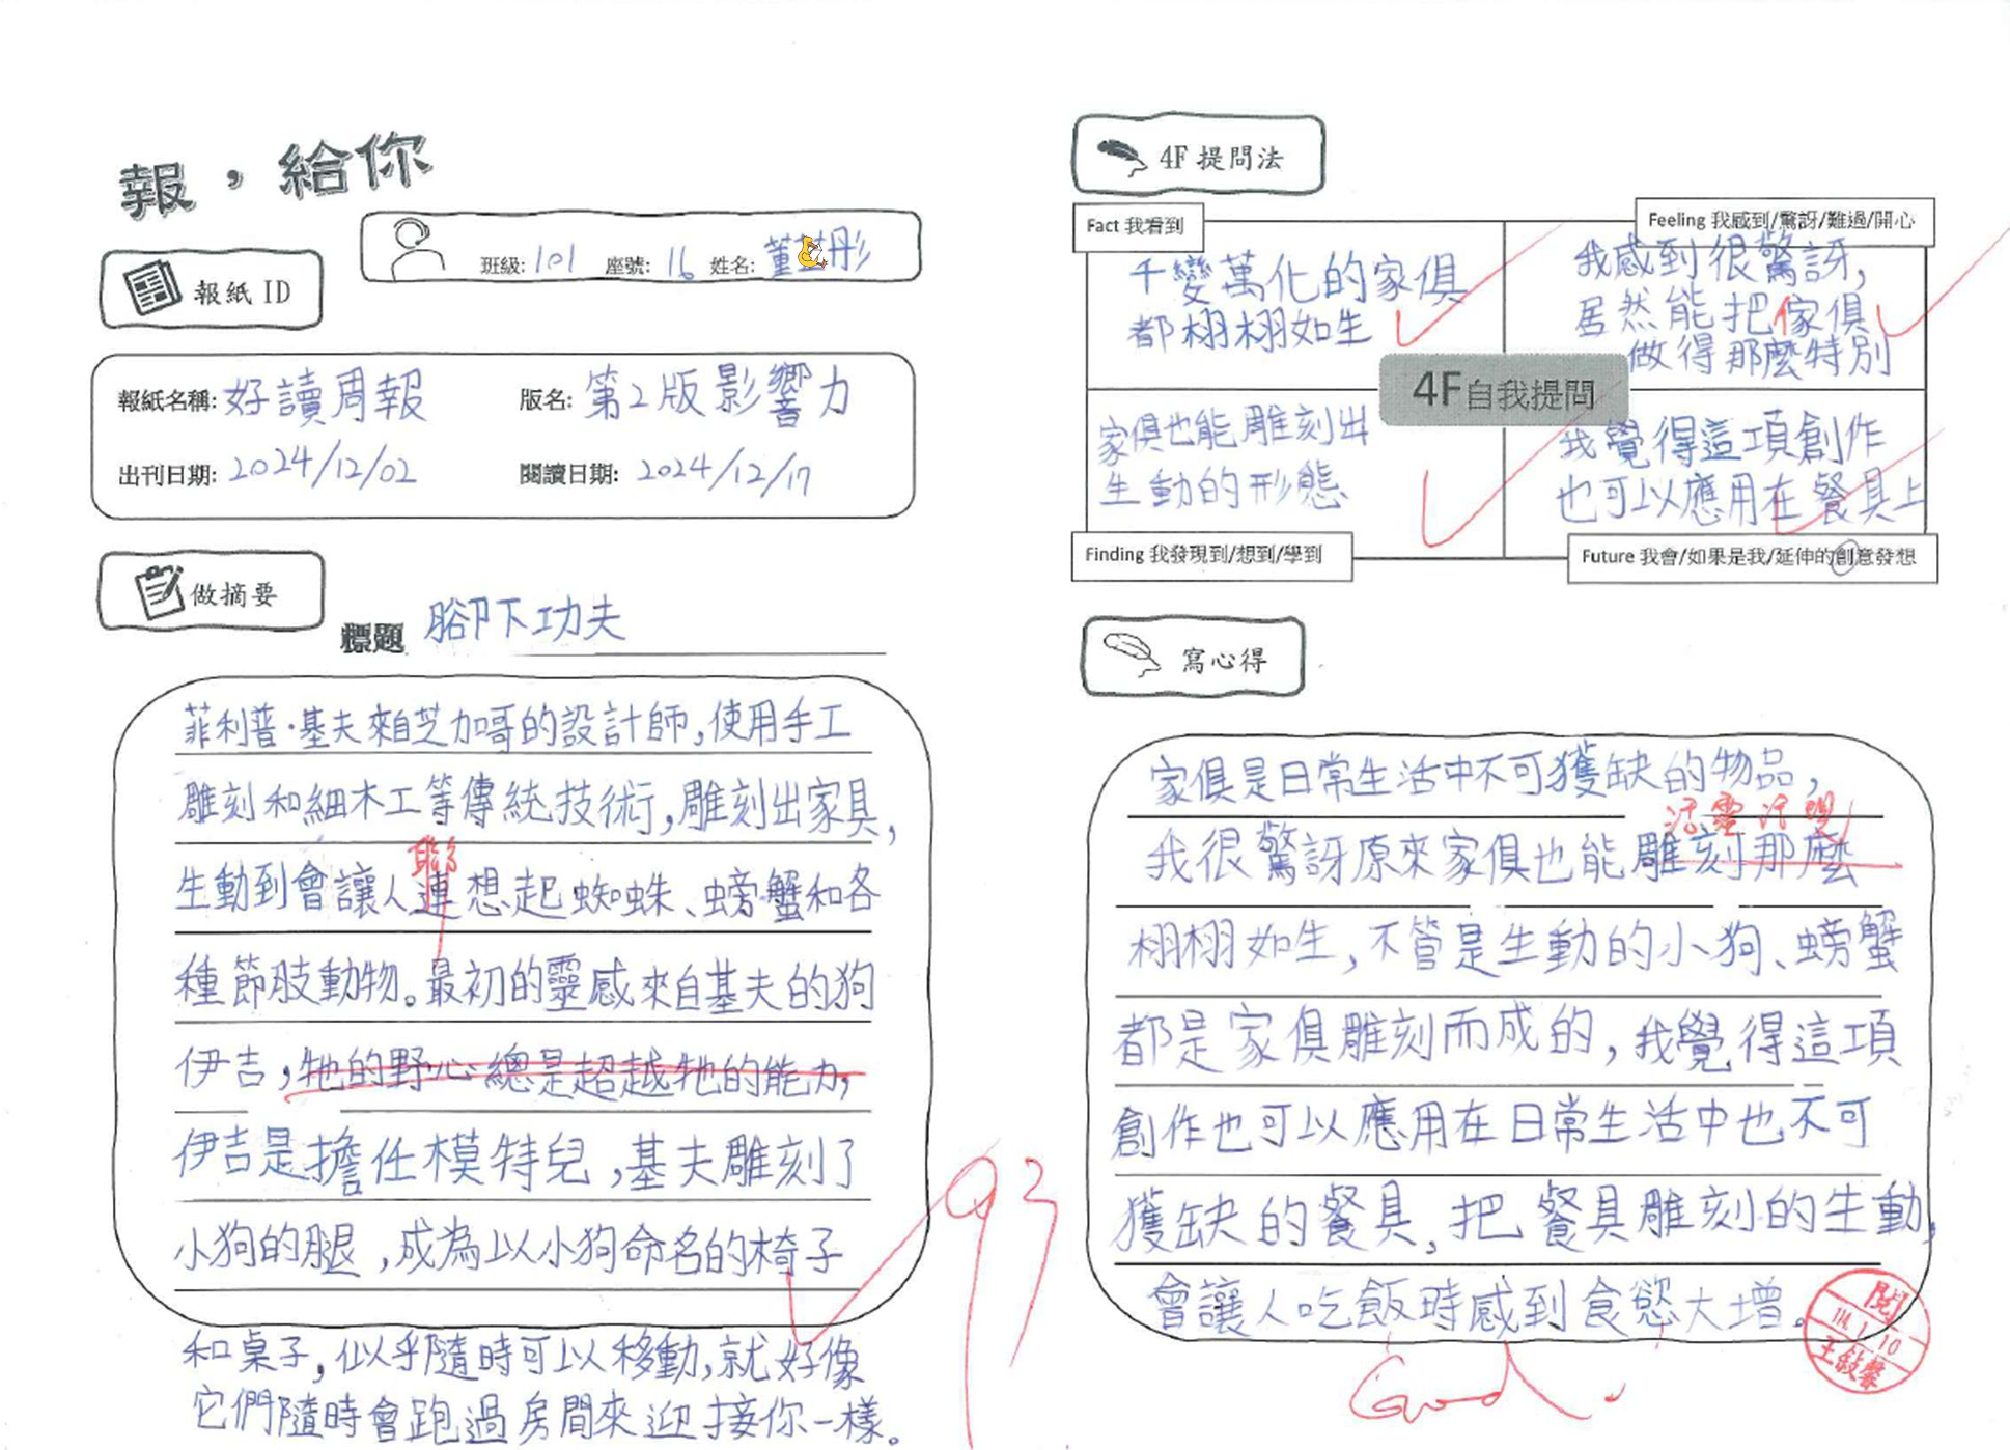 報，給你
班級: 101 座號: 16 姓名: 董 彤
報紙 ID
報紙名稱: 好讀周報 版名: 第2版影響力
出刊日期: 2024/12/02 閱讀日期: 2024/12/17
做摘要
標題 腳下功夫
菲利普·基夫來自芝加哥的設計師,使用手工
雕刻和細木工等傳統技術,雕刻出家具,
聯
生動到會讓人連想起蜘蛛、螃蟹和各
種節肢動物。最初的靈感來自基夫的狗
伊吉,牠的野心總是超越牠的能力,
伊吉是擔任模特兒,基夫雕刻了
小狗的腿,成為以小狗命名的椅子
和桌子,似乎隨時可以移動,就好像
它們隨時會跑過房間來迎接你一樣。
93
4F 提問法
Fact 我看到
千變萬化的家俱
都栩栩如生
Feeling 我感到/驚訝/難過/開心
我感到很驚訝,
居然能把傢俱
做得那麼特別
4F自我提問
家俱也能雕刻出
生動的形態
Finding 我發現到/想到/學到
我覺得這項創作
也可以應用在餐具上
Future 我會/如果是我/延伸的創意發想
寫心得
家俱是日常生活中不可獲缺的物品,
活靈活現
我很驚訝原來家俱也能雕刻那麼
栩栩如生,不管是生動的小狗、螃蟹
都是家俱雕刻而成的,我覺得這項
創作也可以應用在日常生活中也不可
獲缺的餐具,把餐具雕刻的生動,
會讓人吃飯時感到食慾大增。
Good
閱
114.1.10